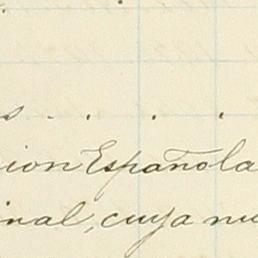 s . . . .
ion Española
inal, cuya nu